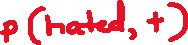 p(hated, +)